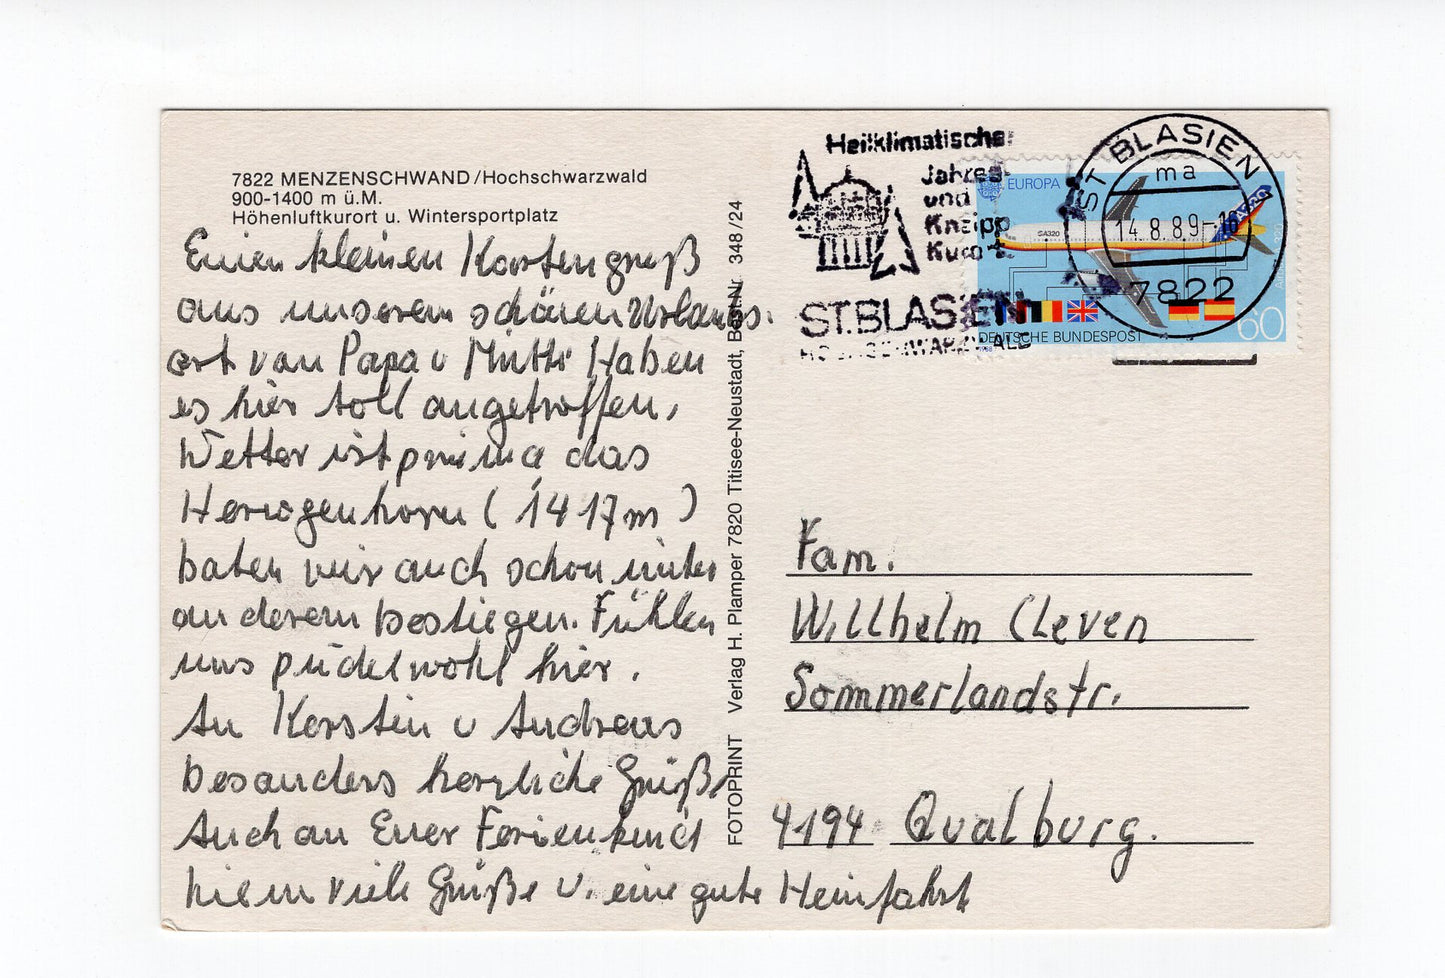 7822 MENZENSCHWAND/Hochschwarzwald
900-1400 m ü.M.
Höhenluftkurort u. Wintersportplatz
Einen kleinen Kartengruß
aus unserem schönen Urlaubs-
ort von Papa u Mutti Haben
es hier toll angetroffen,
Wetter ist prima das
Herzogenhorn (1417m)
haben wir auch schon unter
anderem bestiegen. Fühlen
uns pudelwohl hier.
An Kerstin u Andreas
besonders herzliche Grüße
Auch an Euer Ferienkind
viele Grüße u. eine gute Heimfahrt
FOTOPRINT Verlag H. Plamper 7820 Titisee-Neustadt, Best.Nr. 348/24
Heilklimatischer
Jahres-
und
Kneipp
Kurort
ST.BLASIEN
HOCHSCHWARZWALD
ST BLASIEN
ma
14.8.89-16
7822
EUROPA
SA320
A320
DEUTSCHE BUNDESPOST
60
1988
Fam.
Willhelm Cleven
Sommerlandstr.
4194 Qualburg.